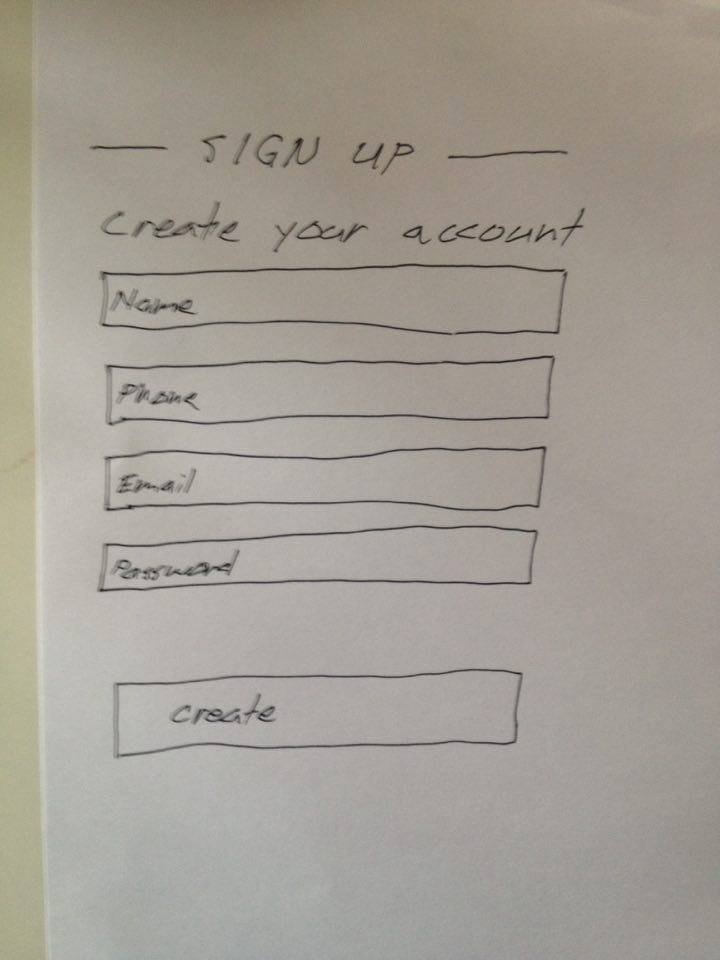 SIGN UP
Create your account
Name
Phone
Email
Password
Create